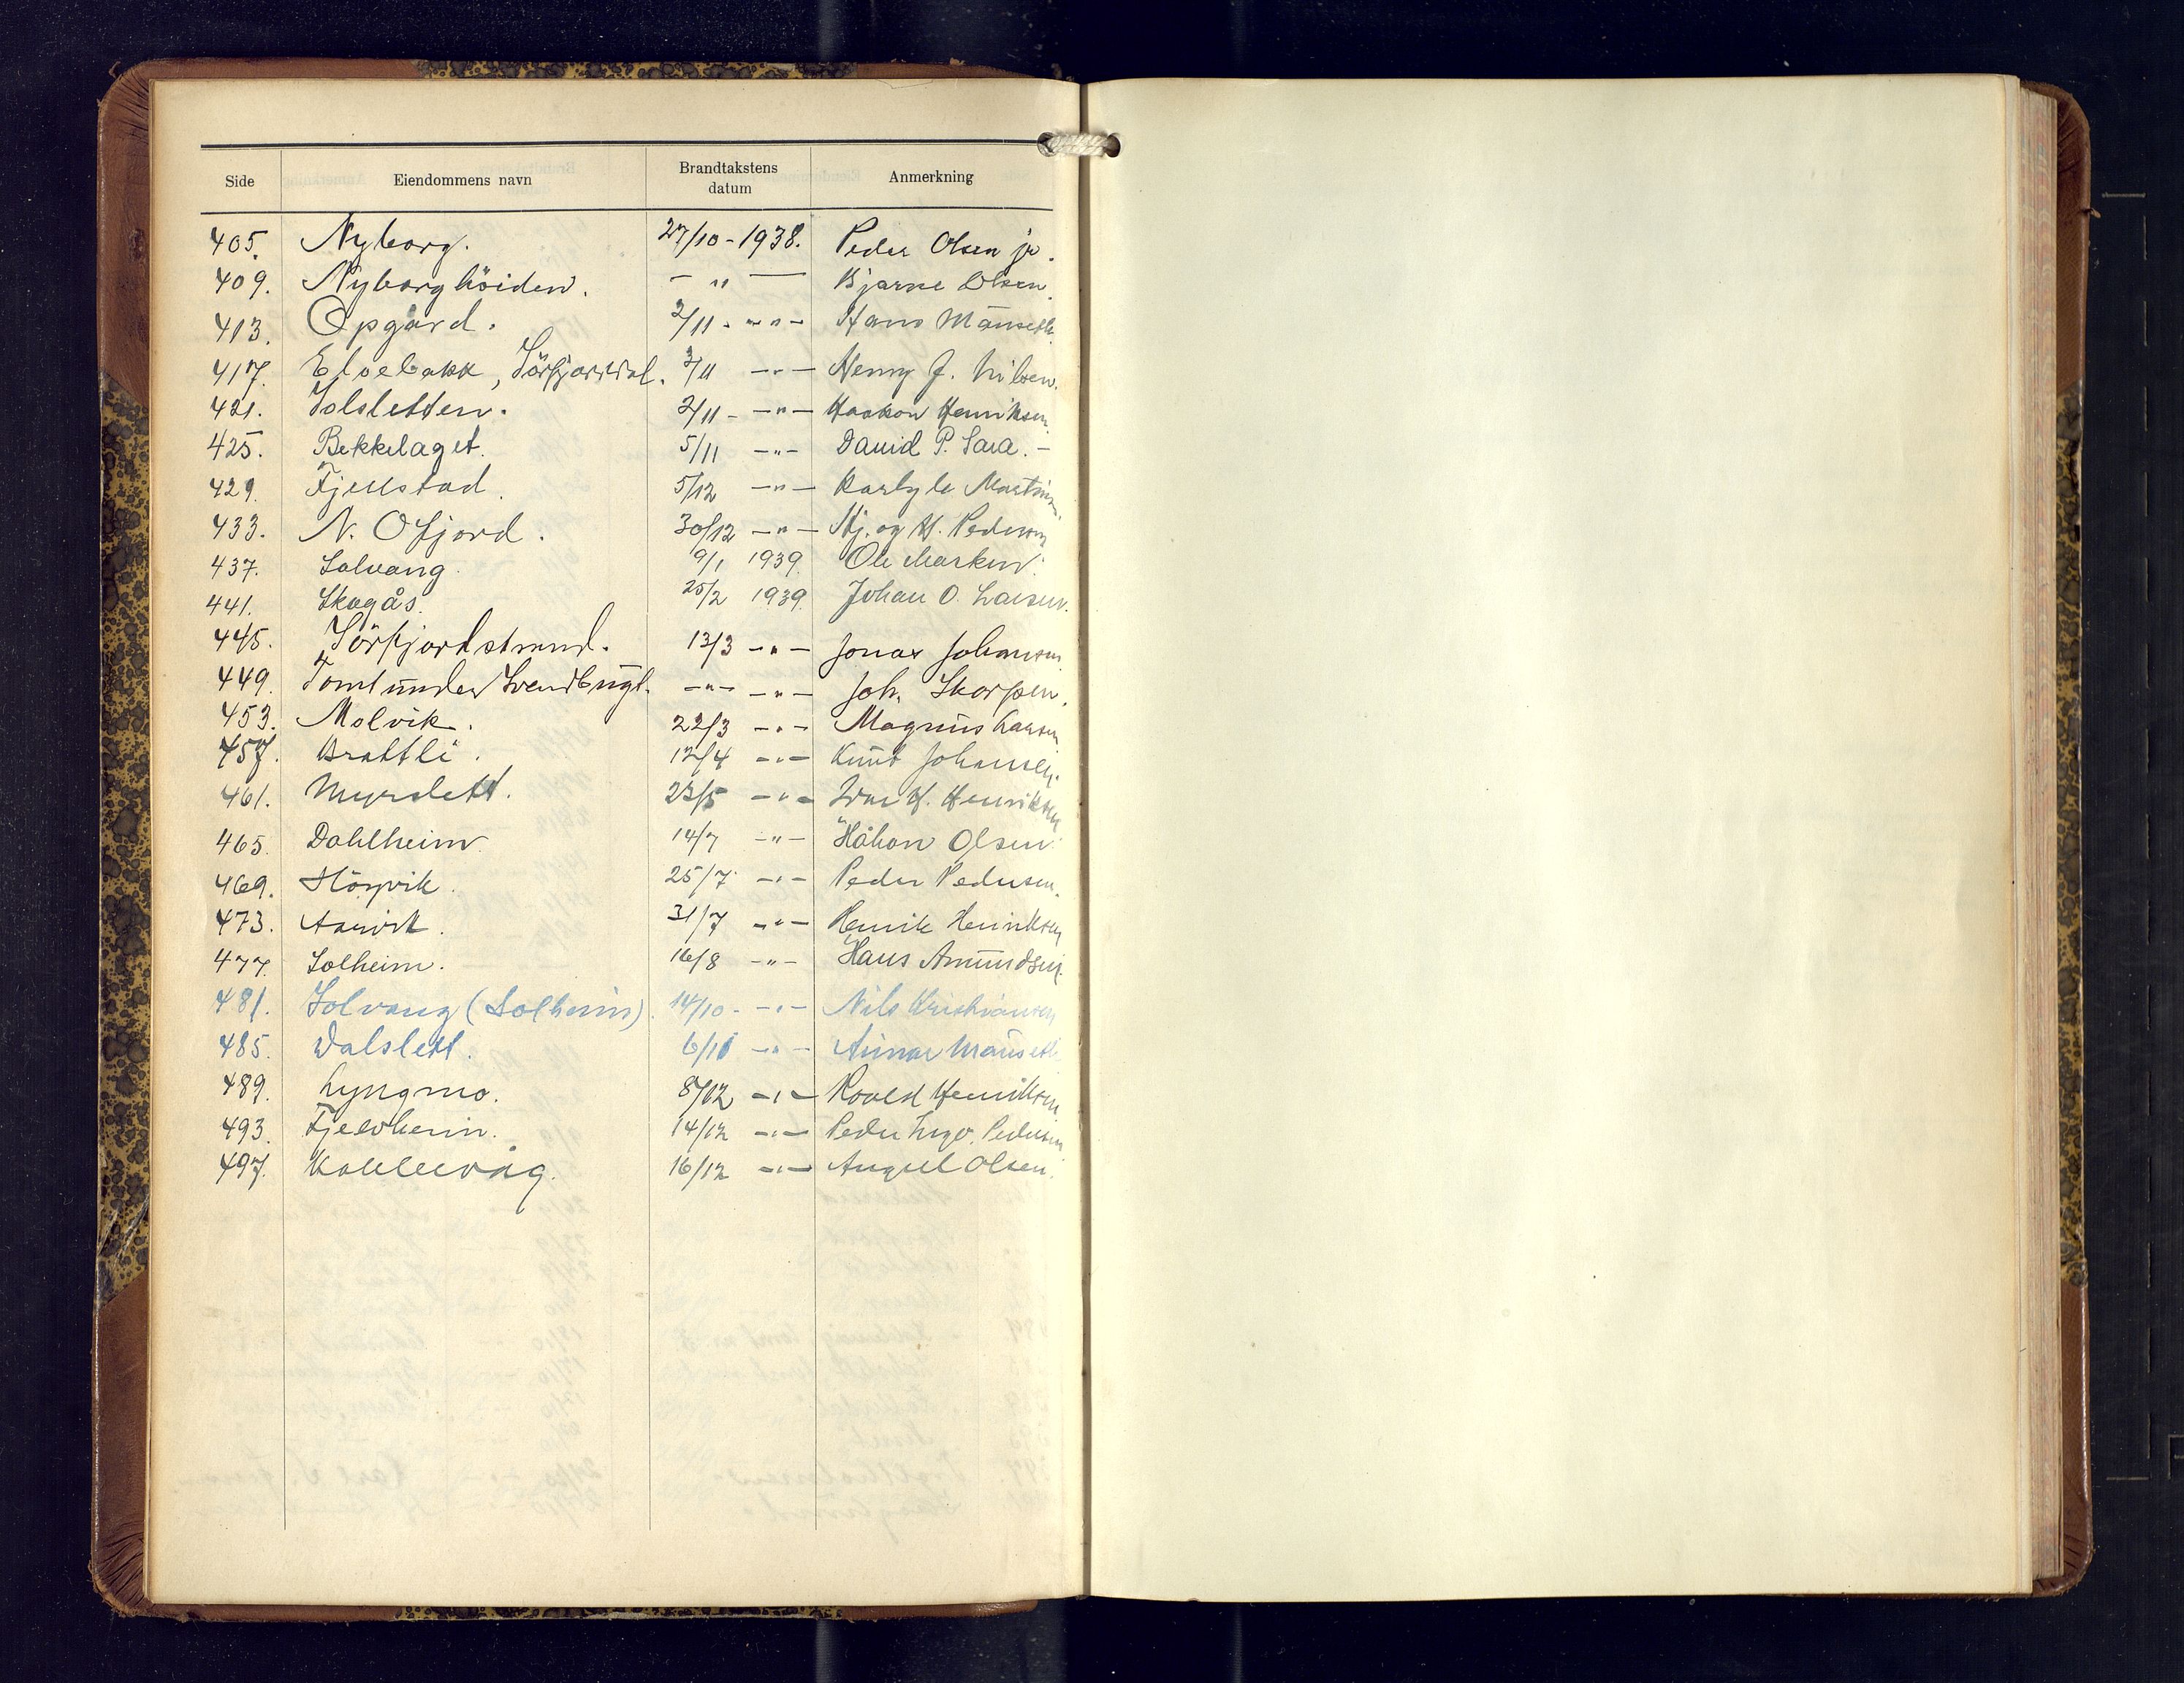 Side Eiendommens navn Brandtakstens datum Anmerkning
405. Nyborg. 27/10-1938. Peder Olsen jr.
409. Nyborghöiden. — „ — Bjarne Olsen.
413. Opgård. 2/11 - — „ — Hans Månseth.
417. Elvebakk, Sörfjorddal. 3/11 — „ — Henry J. Nilsen.
421. Solsletten. 2/11 - — „ — Haakon Henriksen.
425. Bekkelaget. 5/11 — „ — David P. Sara. —
429. Fjellstad. 5/12 — „ — Karly le Martin
433. N. Ofjord. 30/12 — „ — Hj. og H. Pedersen
437. Solvang. 9/1 1939. Ole Marken.
441. Skogås. 25/2 1939. Johan O. Larsen.
445. Sörfjordstrand. 13/3 — „ — Jonas Johansen
449. Tomt under — „ — — „ — Joh. Skorpen.
453. Molvik. 22/3 — „ — Magnus Larsen
457. Brattli. 12/4 — „ — Knut Johansen.
461. Myrslett. 23/5 — „ — Ivar H. Henriksen
465. Dahlheim. 14/7 — „ — Håkon Olsen
469. 25/7 — „ — Peder Pedersen.
473. 31/7 — „ — Henrik Henriksen
477. Solheim. 16/8 — „ — Hans Amundsen.
481. Solvang (Solheim). 14/10 - — „ — Nils Kristiansen
485. Dalslett. 6/11 — „ — Månseth
489. Lyngmo. 8/12 — „ — Roald Henriksen
493. Fjellheim. 14/12 — „ — Peder Pedersen
497. 16/12 — „ — Angel Olsen.